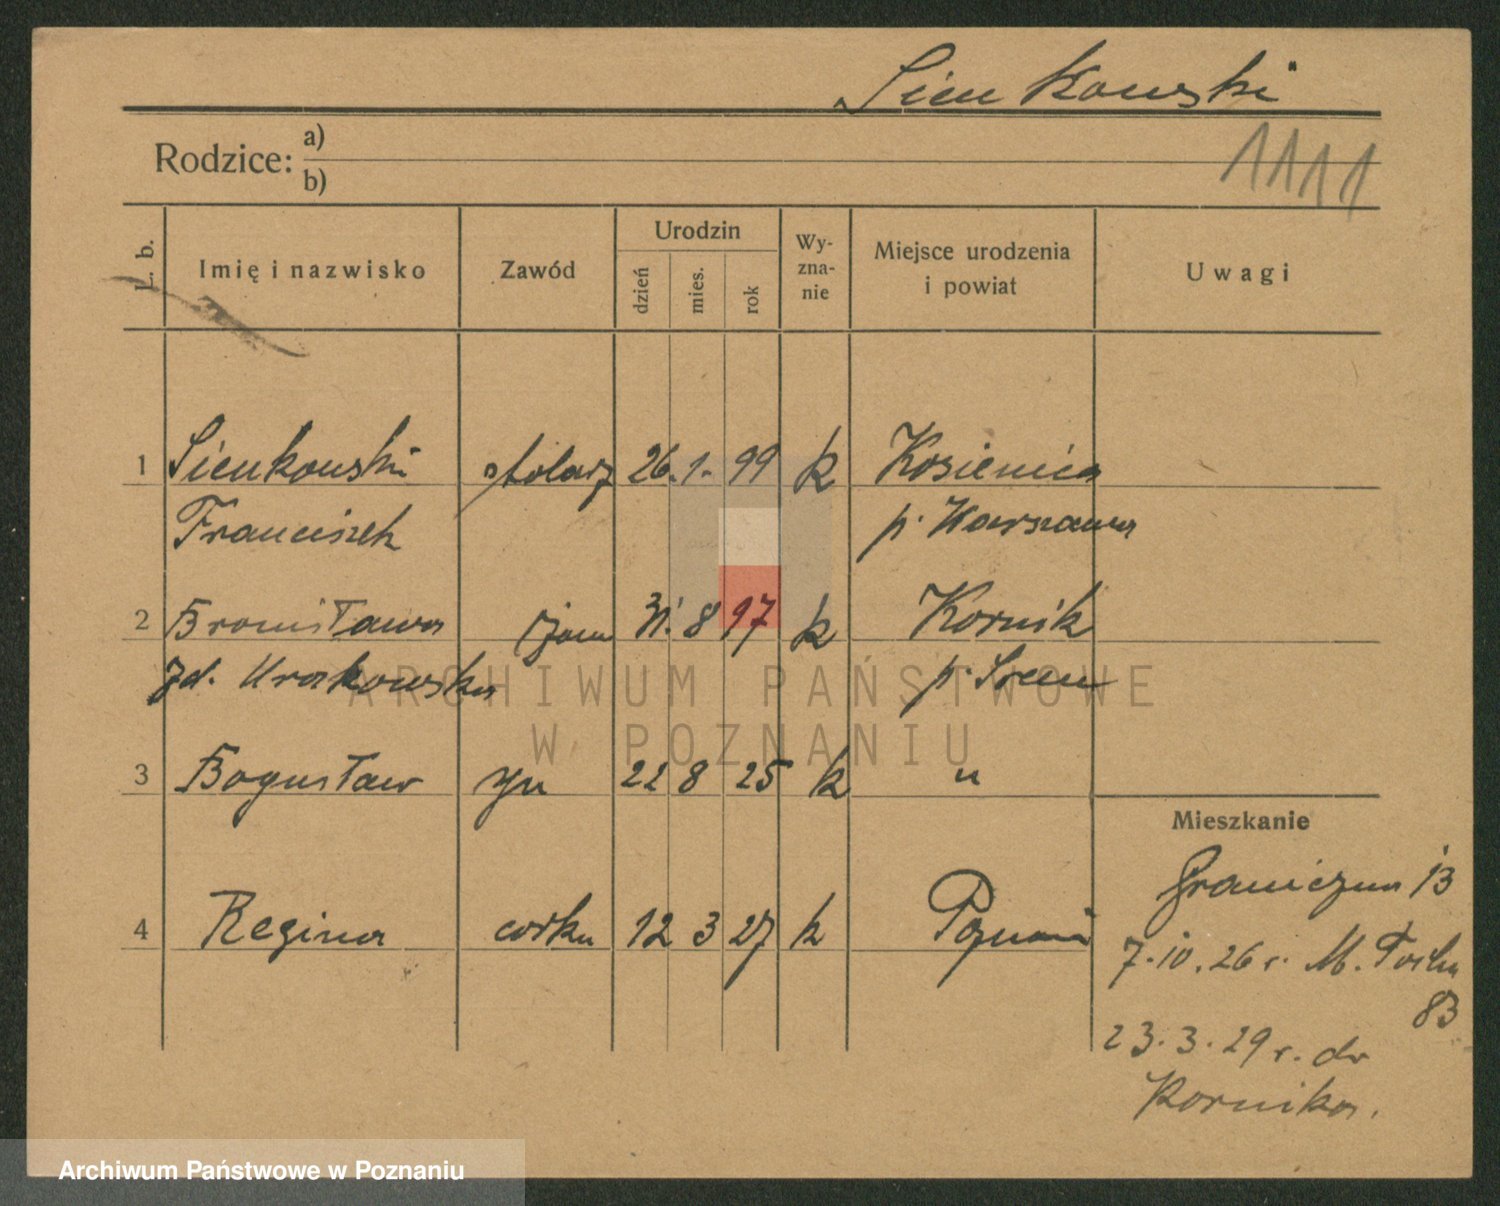 Sienkowski
Rodzice: a)
b)
1111
L. b.
Imię i nazwisko
Zawód
Urodzin
dzień
mies.
rok
Wy-
zna-
nie
Miejsce urodzenia
i powiat
Uwagi
1 Sienkowski stolarz 26. 1. 99 k Kosienica
Franciszek p. Warszawa
2 Bronisława żona 31. 8 97 k Kornik
zd. Krakowska p. Srem
3 Bogusław syn 22 8 25 k "
Mieszkanie
Graniczna 13
4 Regina corka 12 3 27 k Poznań
7.10.26 r. M. Focha
83
23.3.29 r. do
Kornika.
ARCHIWUM PAŃSTWOWE
W POZNANIU
Archiwum Państwowe w Poznaniu